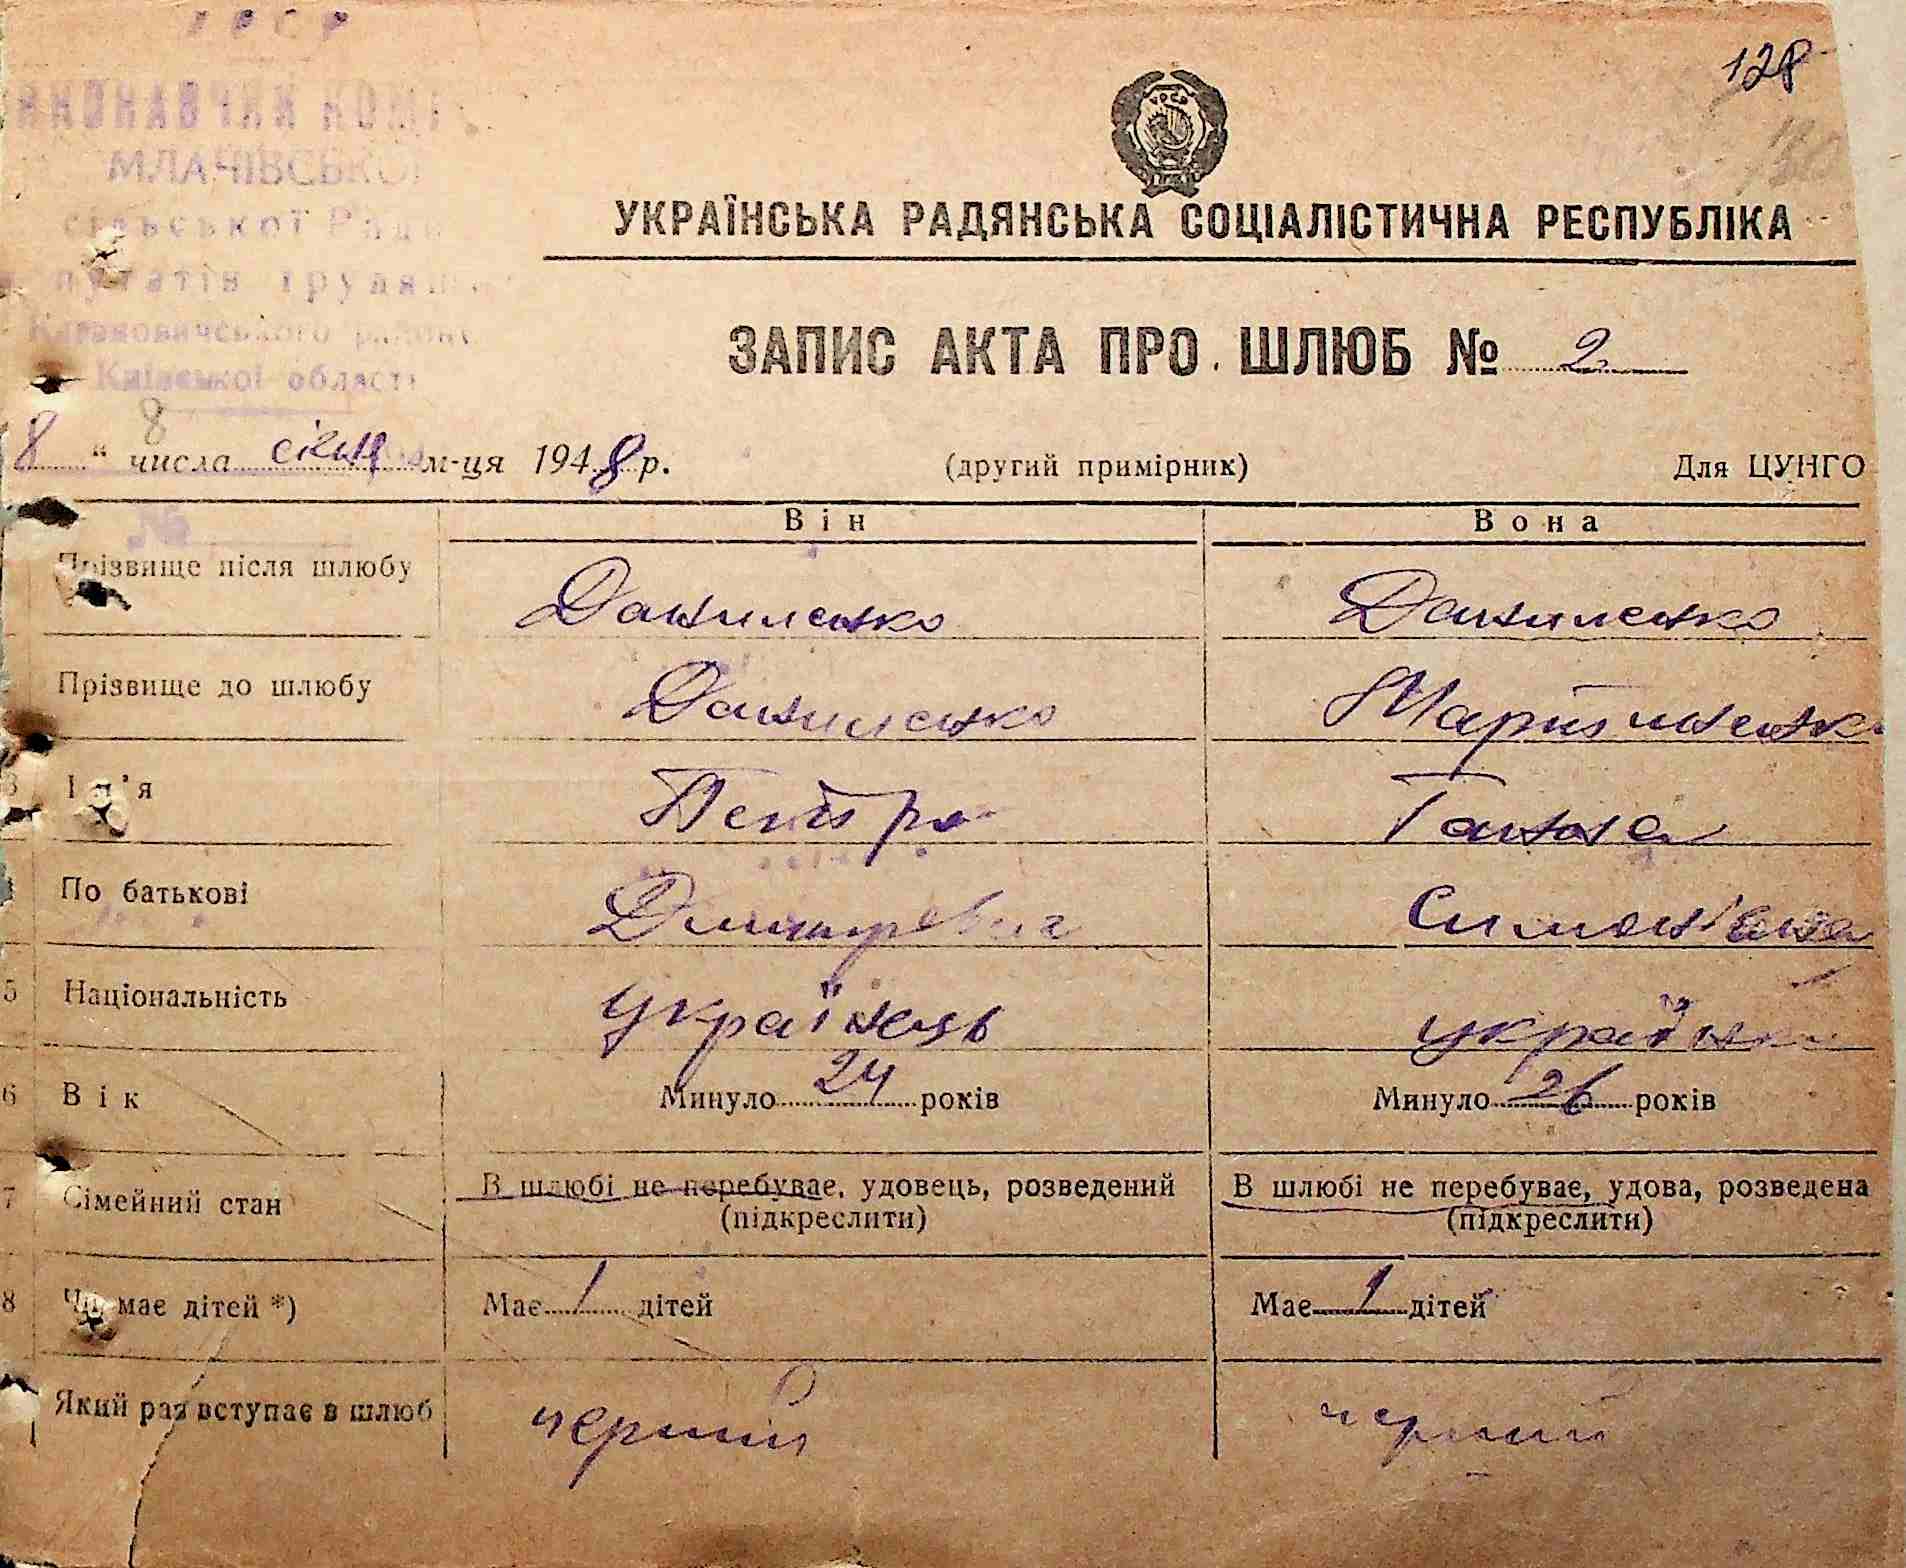 УРСР
ВИКОНАВЧИЙ КОМІ
МЛАЧІВСЬКОЇ
сільської Ради
путатів трудящ
Кагановичського району
Київської області
128
130
УРСР
УКРАЇНСЬКА РАДЯНСЬКА СОЦІАЛІСТИЧНА РЕСПУБЛІКА
ЗАПИС АКТА ПРО ШЛЮБ № 2
8
8 " числа січня м-ця 1948 р. (другий примірник) Для ЦУНГО
№
Він Вона
Прізвище після шлюбу Даниленко Даниленко
Прізвище до шлюбу Даниленко Мартиненк
3 Ім'я Петро Ганна
4 По батькові Дмитрович Симонівна
5 Національність українець українка
6 Вік Минуло 24 років Минуло 26 років
7 Сімейний стан В шлюбі не перебуває, удовець, розведений В шлюбі не перебуває, удова, розведена
(підкреслити) (підкреслити)
8 Чи має дітей *) Має 1 дітей Має 1 дітей
Який раз вступає в шлюб перший перший